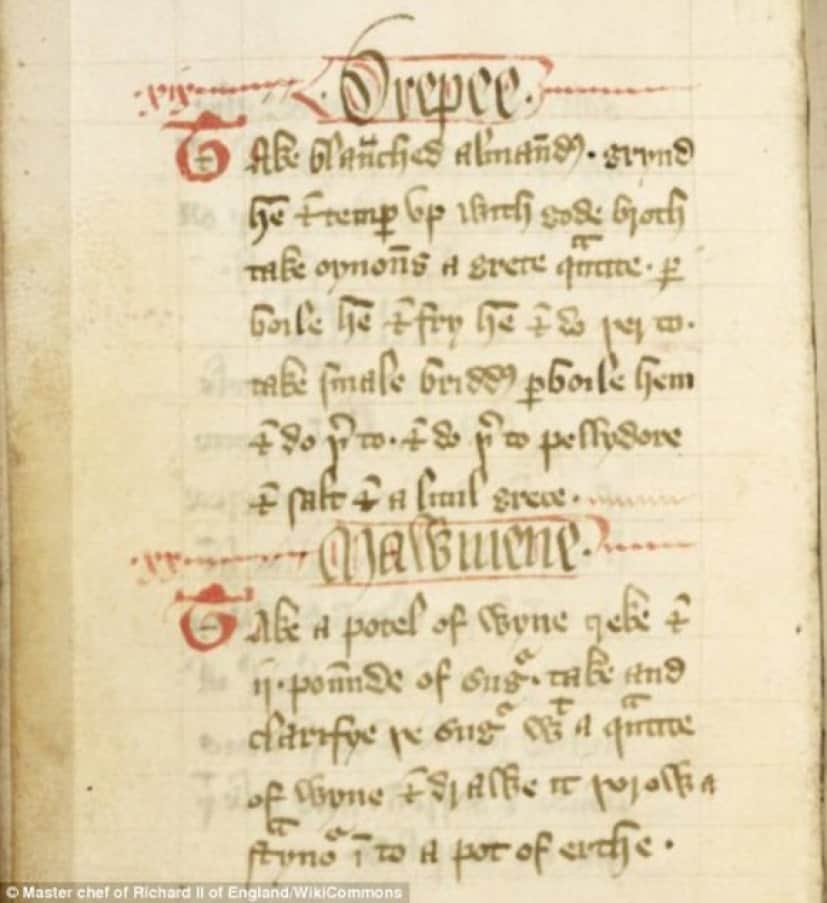 .xix.
Drepee.
Take blau̅ched alma̅ndes. grynd
he̅ ⁊ temp̱ vp with gode broth
take oynou̅s a grete qᵃ̅tite. p̱
boile he̅ ⁊ fry he̅ ⁊ do þerto.
take smale bridd p̱boile hem
⁊ do þ̉to. ⁊ do þ̉ to pellydore
⁊ salt ⁊ a lytil grece.
.xx.
Mawmene.
Take a potel of wyne greke ⁊
ij. pou̅nde of sugᵃ. take and
clarifye þe sugᵃ wᵗ a qᵃ̅tite
of wyne ⁊ drawe it þorow a
stᵃynoᵃ i̅ to a pot of erthe.
© Master chef of Richard II of England/WikiCommons